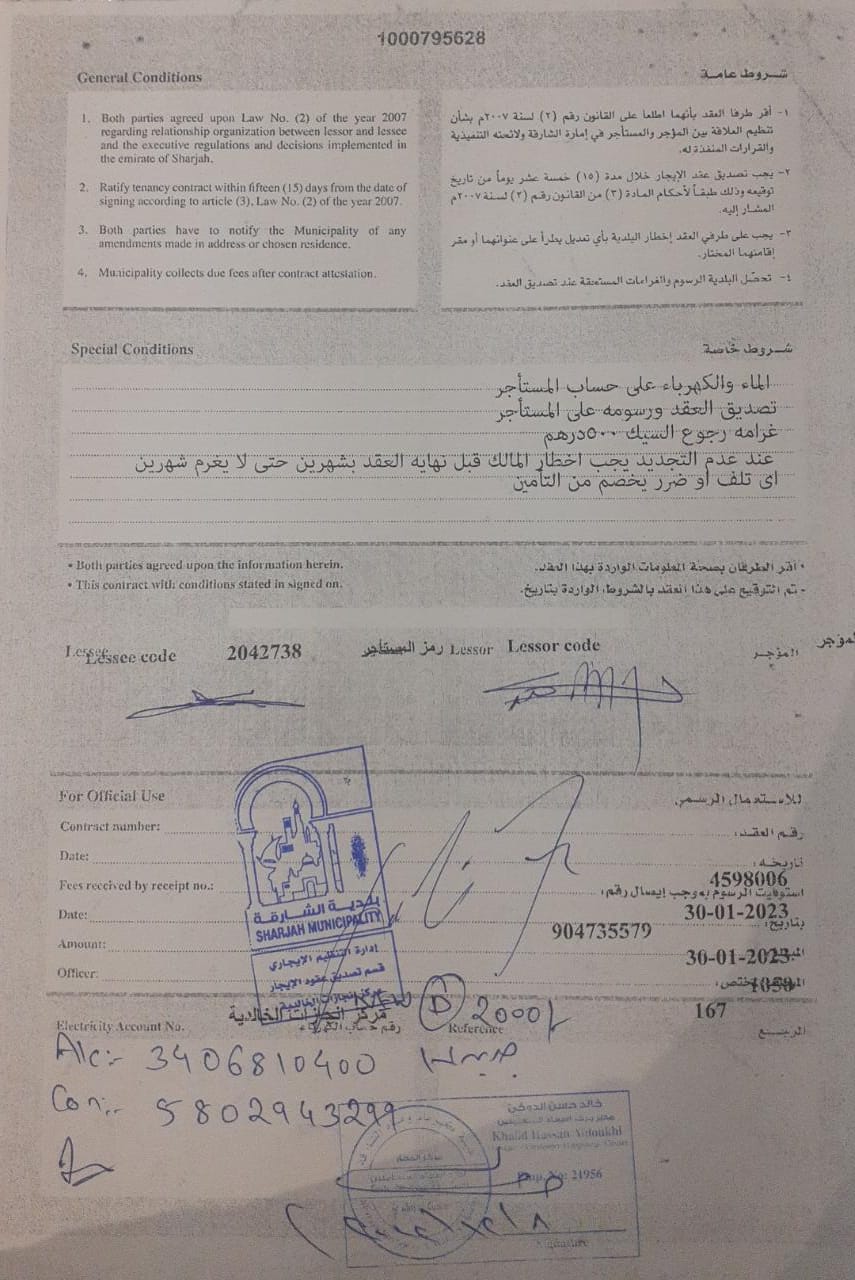 1000795628
General Conditions
شروط عامة
1. Both parties agreed upon Law No. (2) of the year 2007
regarding relationship organization between lessor and lessee
and the executive regulations and decisions implemented in
the emirate of Sharjah.
2. Ratify tenancy contract within fifteen (15) days from the date of
signing according to article (3), Law No. (2) of the year 2007.
3. Both parties have to notify the Municipality of any
amendments made in address or chosen residence.
4. Municipality collects due fees after contract attestation.
١- أقر طرفا العقد بأنهما اطلعا على القانون رقم (٢) لسنة ٢٠٠٧م بشأن
تنظيم العلاقة بين المؤجر والمستأجر في إمارة الشارقة ولائحته التنفيذية
والقرارات المنفذة له.
٢- يجب تصديق عقد الإيجار خلال مدة (١٥) خمسة عشر يوماً من تاريخ
توقيعه وذلك طبقاً لأحكام المادة (٣) من القانون رقم (٢) لسنة ٢٠٠٧م
المشار إليه.
٣- يجب على طرفي العقد إخطار البلدية بأي تعديل يطرأ على عنوانهما أو مقر
إقامتهما المختار.
٤- تحصّل البلدية الرسوم والغرامات المستحقة عند تصديق العقد.
Special Conditions
شروط خاصة
الماء والكهرباء على حساب المستأجر
تصديق العقد ورسومه على المستأجر
غرامه رجوع الشيك ٥٠٠درهم
عند عدم التجديد يجب اخطار المالك قبل نهايه العقد بشهرين حتى لا يغرم شهرين
اى تلف او ضرر يخصم من التأمين
• Both parties agreed upon the information herein.
• أقر الطرفان بصحة المعلومات الواردة بهذا العقد.
• This contract with conditions stated in signed on.
- تم التوقيع على هذا العقد بالشروط الواردة بتاريخ.
Lessee Lessee code 2042738 رمز المستأجر Lessor Lessor code المؤجر المؤجر
For Official Use
للاستعمال الرسمي
Contract number: رقم العقد:
Date: تاريخه:
4598006
Fees received by receipt no.: استوفيت الرسوم بموجب إيصال رقم:
Date: 30-01-2023 بتاريخ:
904735579
Amount: 30-01-2023
Officer: 1058
بلدية الشارقة
SHARJAH MUNICIPALITY
إدارة التنظيم الايجاري
قسم تصديق عقود الايجار
مركز انجازات الخالدية
مركز انجازات الخالدية
167
Electricity Account No. رقم حساب الكهرباء Reference المرجع
D 2000/-
A/c:- 3406810400
Con:- 5802943299
خالد حسن الدوخي
Khalid Hassan Aldoukhi
Emp. No: 21956
Signature